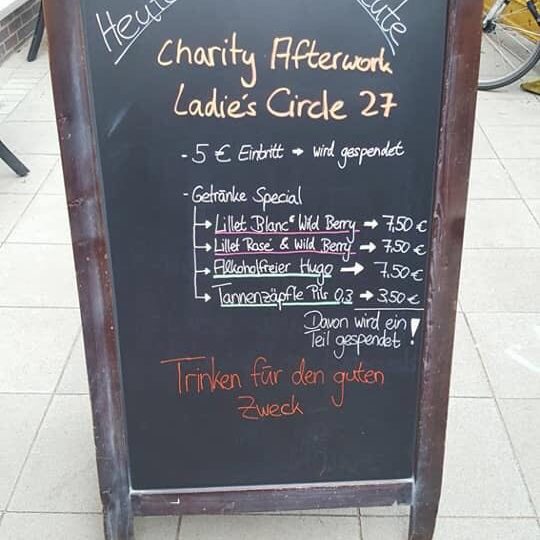 Heute
Charity Afterwork
Ladie's Circle 27
- 5 € Eintritt → wird gespendet
- Getränke Special
→ Lillet Blanc & Wild Berry → 7,50 €
→ Lillet Rosé & Wild Berry → 7,50 €
→ Alkoholfreier Hugo → 7,50 €
→ Tannenzäpfle Pils 0,3 → 3,50 €
Davon wird ein
Teil gespendet!
Trinken für den guten
Zweck